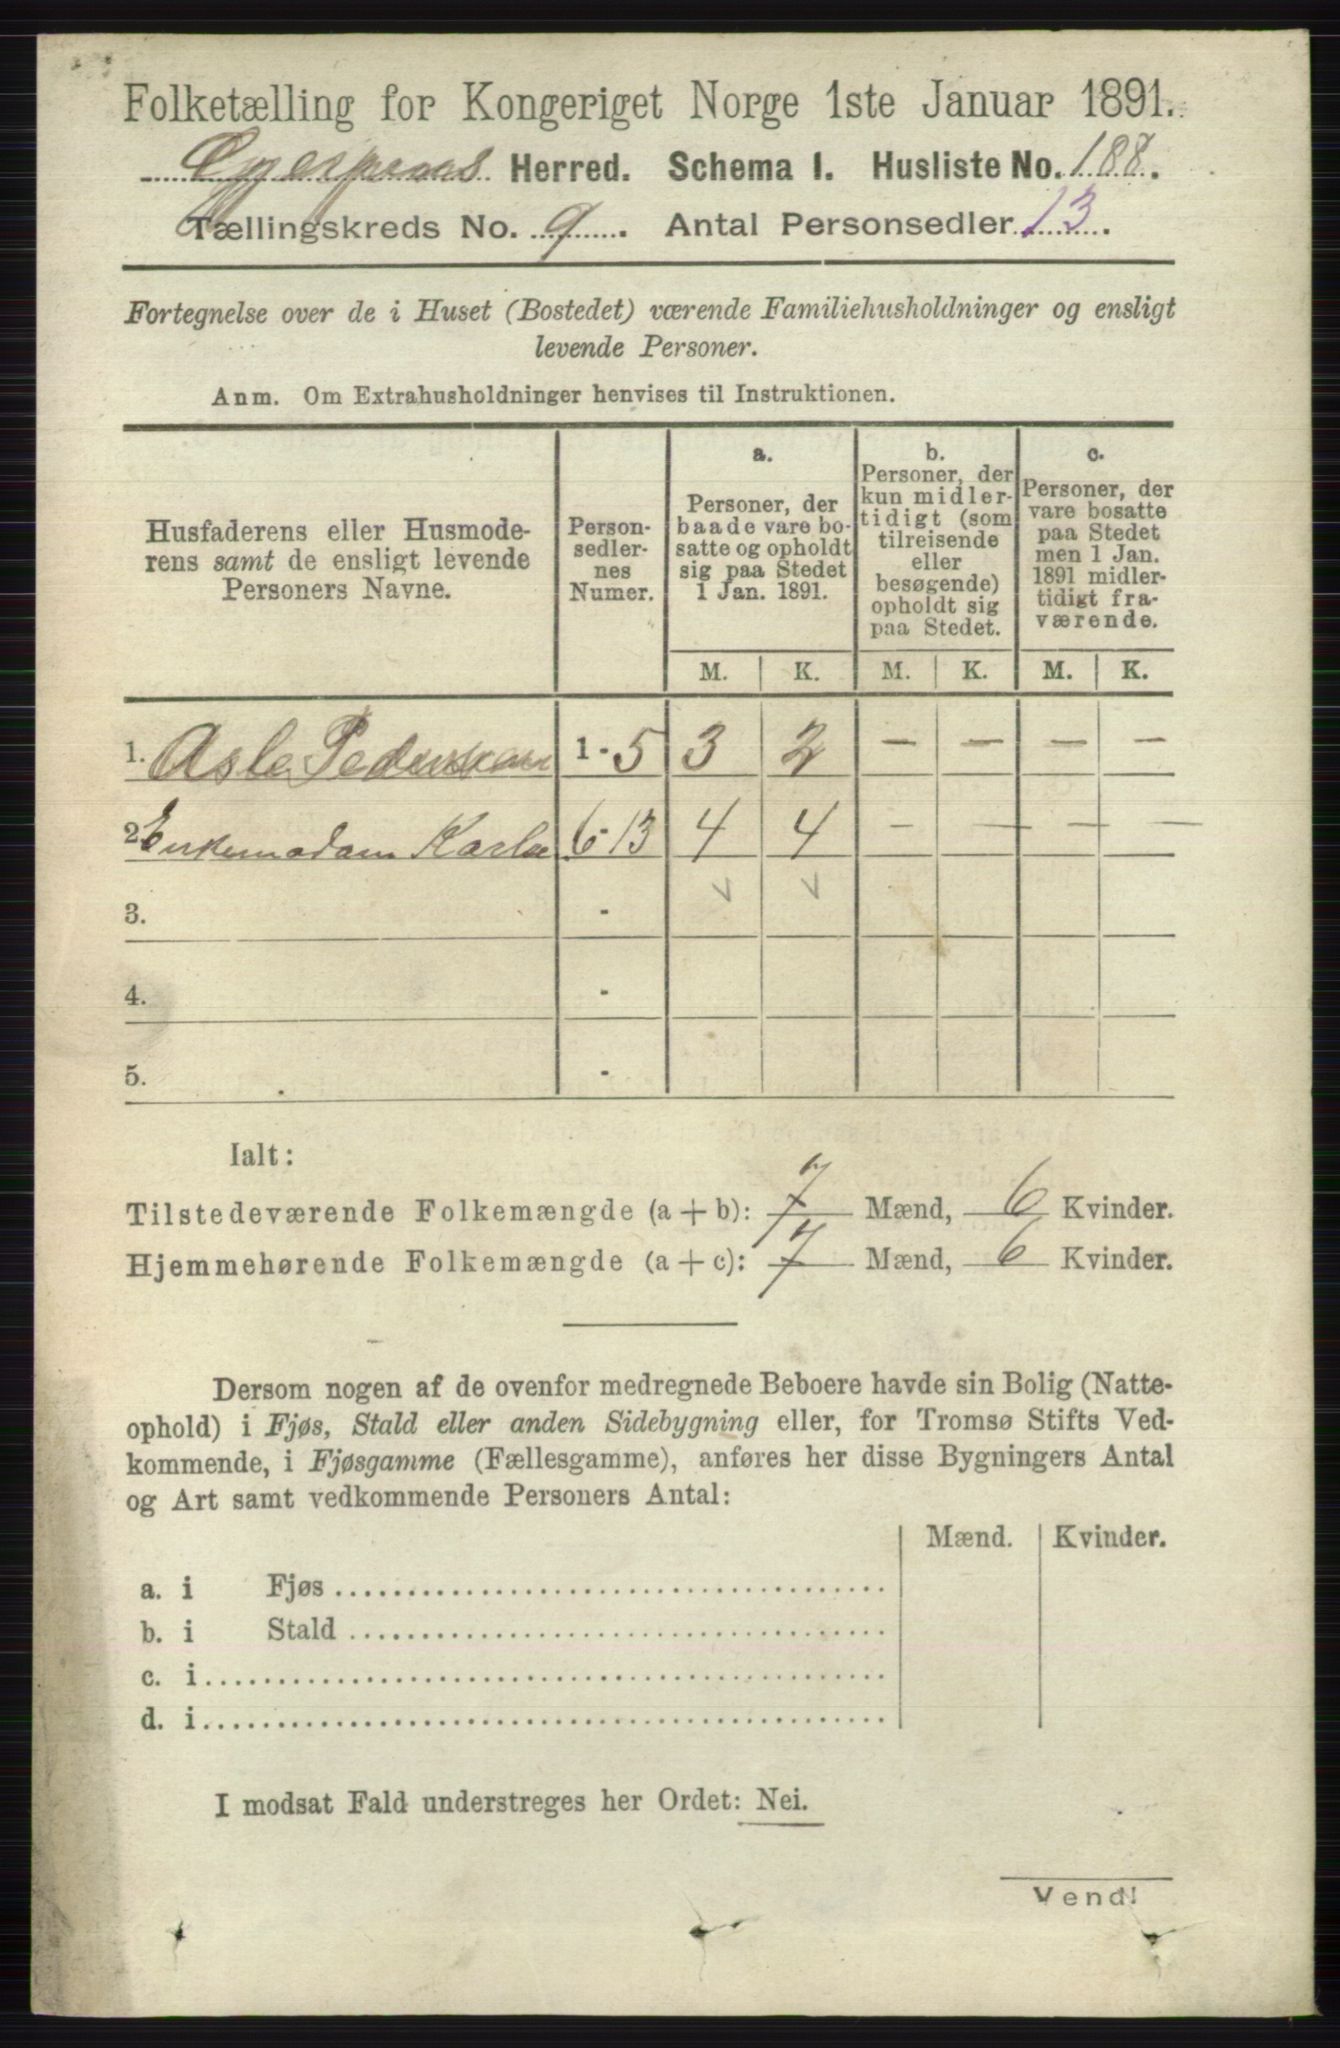 Folketælling for Kongeriget Norge 1ste Januar 1891.
Gjerpens Herred. Schema I. Husliste No. 188.
Tællingskreds No. 9. Antal Personsedler 13.
Fortegnelse over de i Huset (Bostedet) værende Familiehusholdninger og ensligt
levende Personer.
Anm. Om Extrahusholdninger henvises til Instruktionen.
Husfaderens eller Husmode-
rens samt de ensligt levende
Personers Navne.
Person-
sedler-
nes
Numer.
a.
Personer, der
baade vare bo-
satte og opholdt
sig paa Stedet
1 Jan. 1891.
b.
Personer, der
kun midler-
tidigt (som
tilreisende
eller
besøgende)
opholdt sig
paa Stedet.
c.
Personer, der
vare bosatte
paa Stedet
men 1 Jan.
1891 midler-
tidigt fra-
værende.
M. K. M. K. M. K.
1. Asle Pedersen 1-5 3 2 - - - -
2. Enkemadam Karla 6-13 4 4 - - - -
3. -
4. -
5. -
Ialt:
Tilstedeværende Folkemængde (a + b): 7 Mænd, 6 Kvinder.
Hjemmehørende Folkemængde (a + c): 7 Mænd, 6 Kvinder.
Dersom nogen af de ovenfor medregnede Beboere havde sin Bolig (Natte-
ophold) i Fjøs, Stald eller anden Sidebygning eller, for Tromsø Stifts Ved-
kommende, i Fjøsgamme (Fællesgamme), anføres her disse Bygningers Antal
og Art samt vedkommende Personers Antal:
Mænd. Kvinder.
a. i Fjøs
b. i Stald
c. i
d. i
I modsat Fald understreges her Ordet: Nei.
Vend!